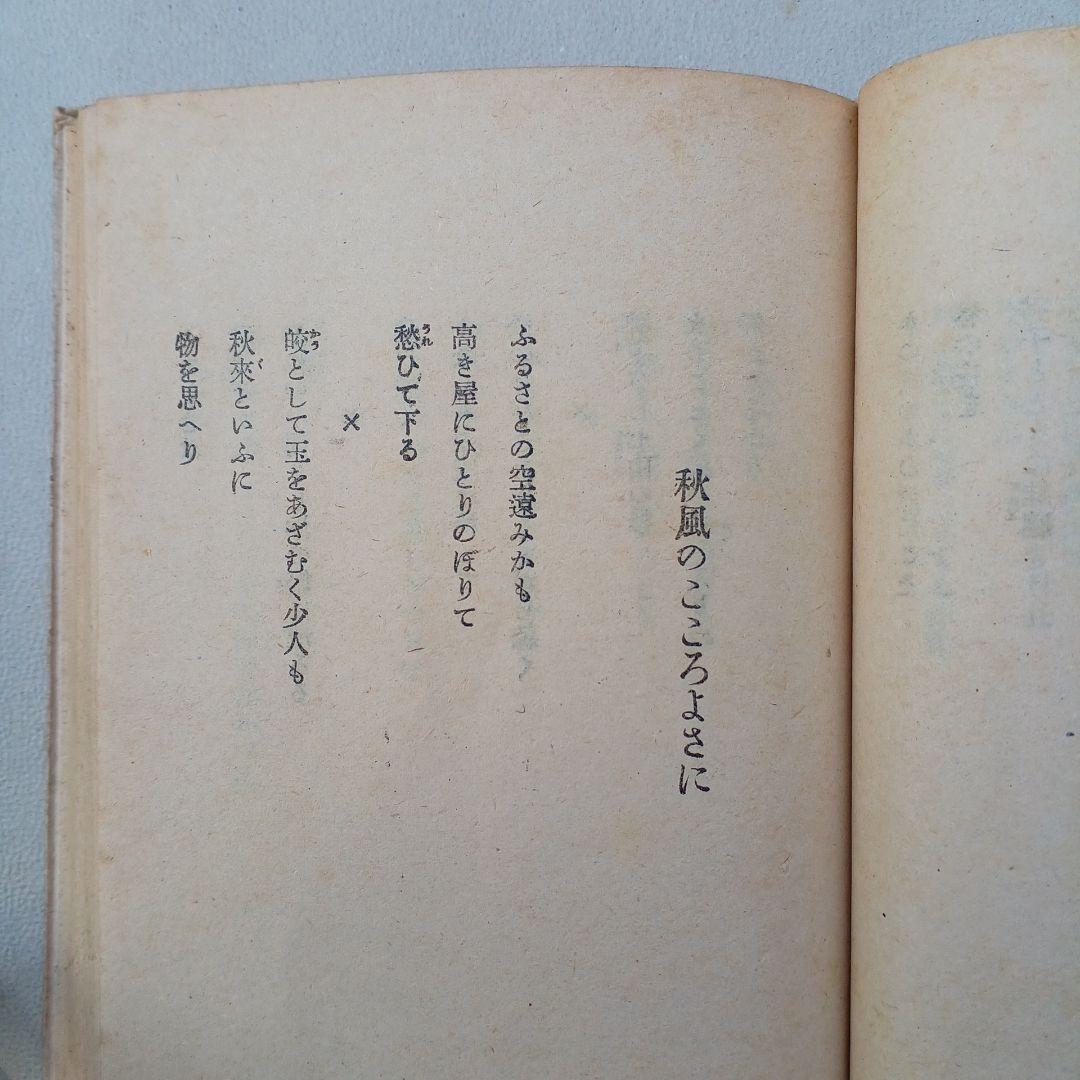 秋風のこころよさに
ふるさとの空遠みかも
高き屋にひとりのぼりて
愁ひて下る
×
皎として玉をあざむく少人も
秋來といふに
物を思へり